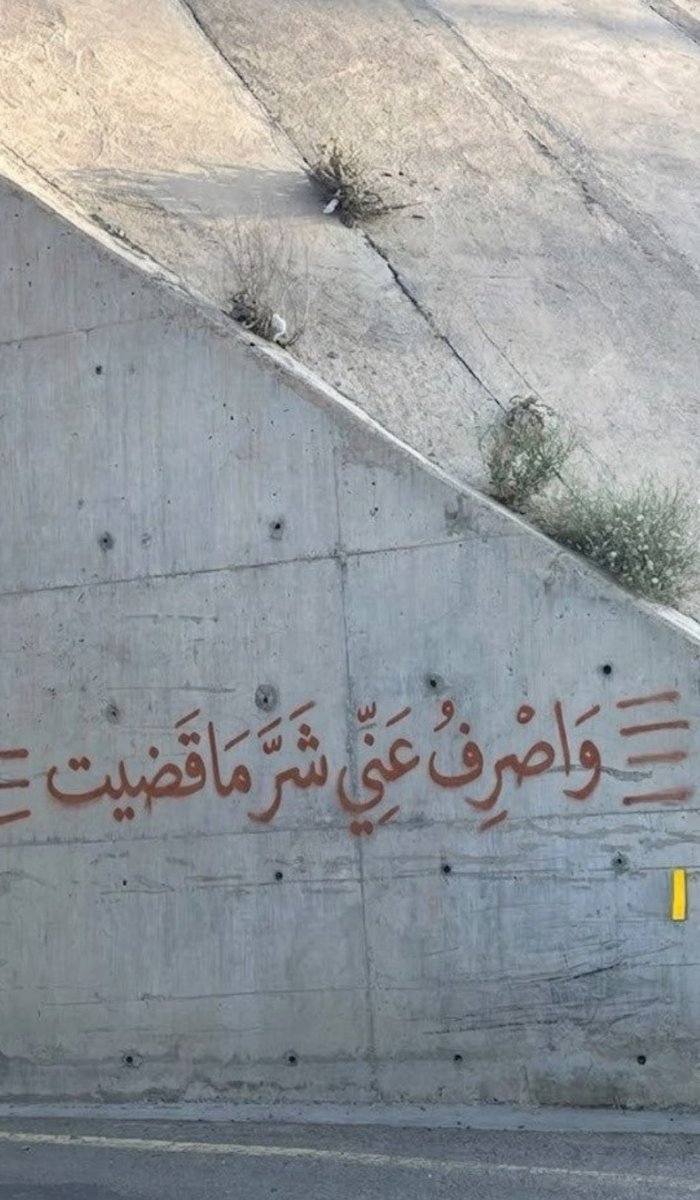 وَاصْرِفُ عَنِّي شَرَّ مَا قَضَيت